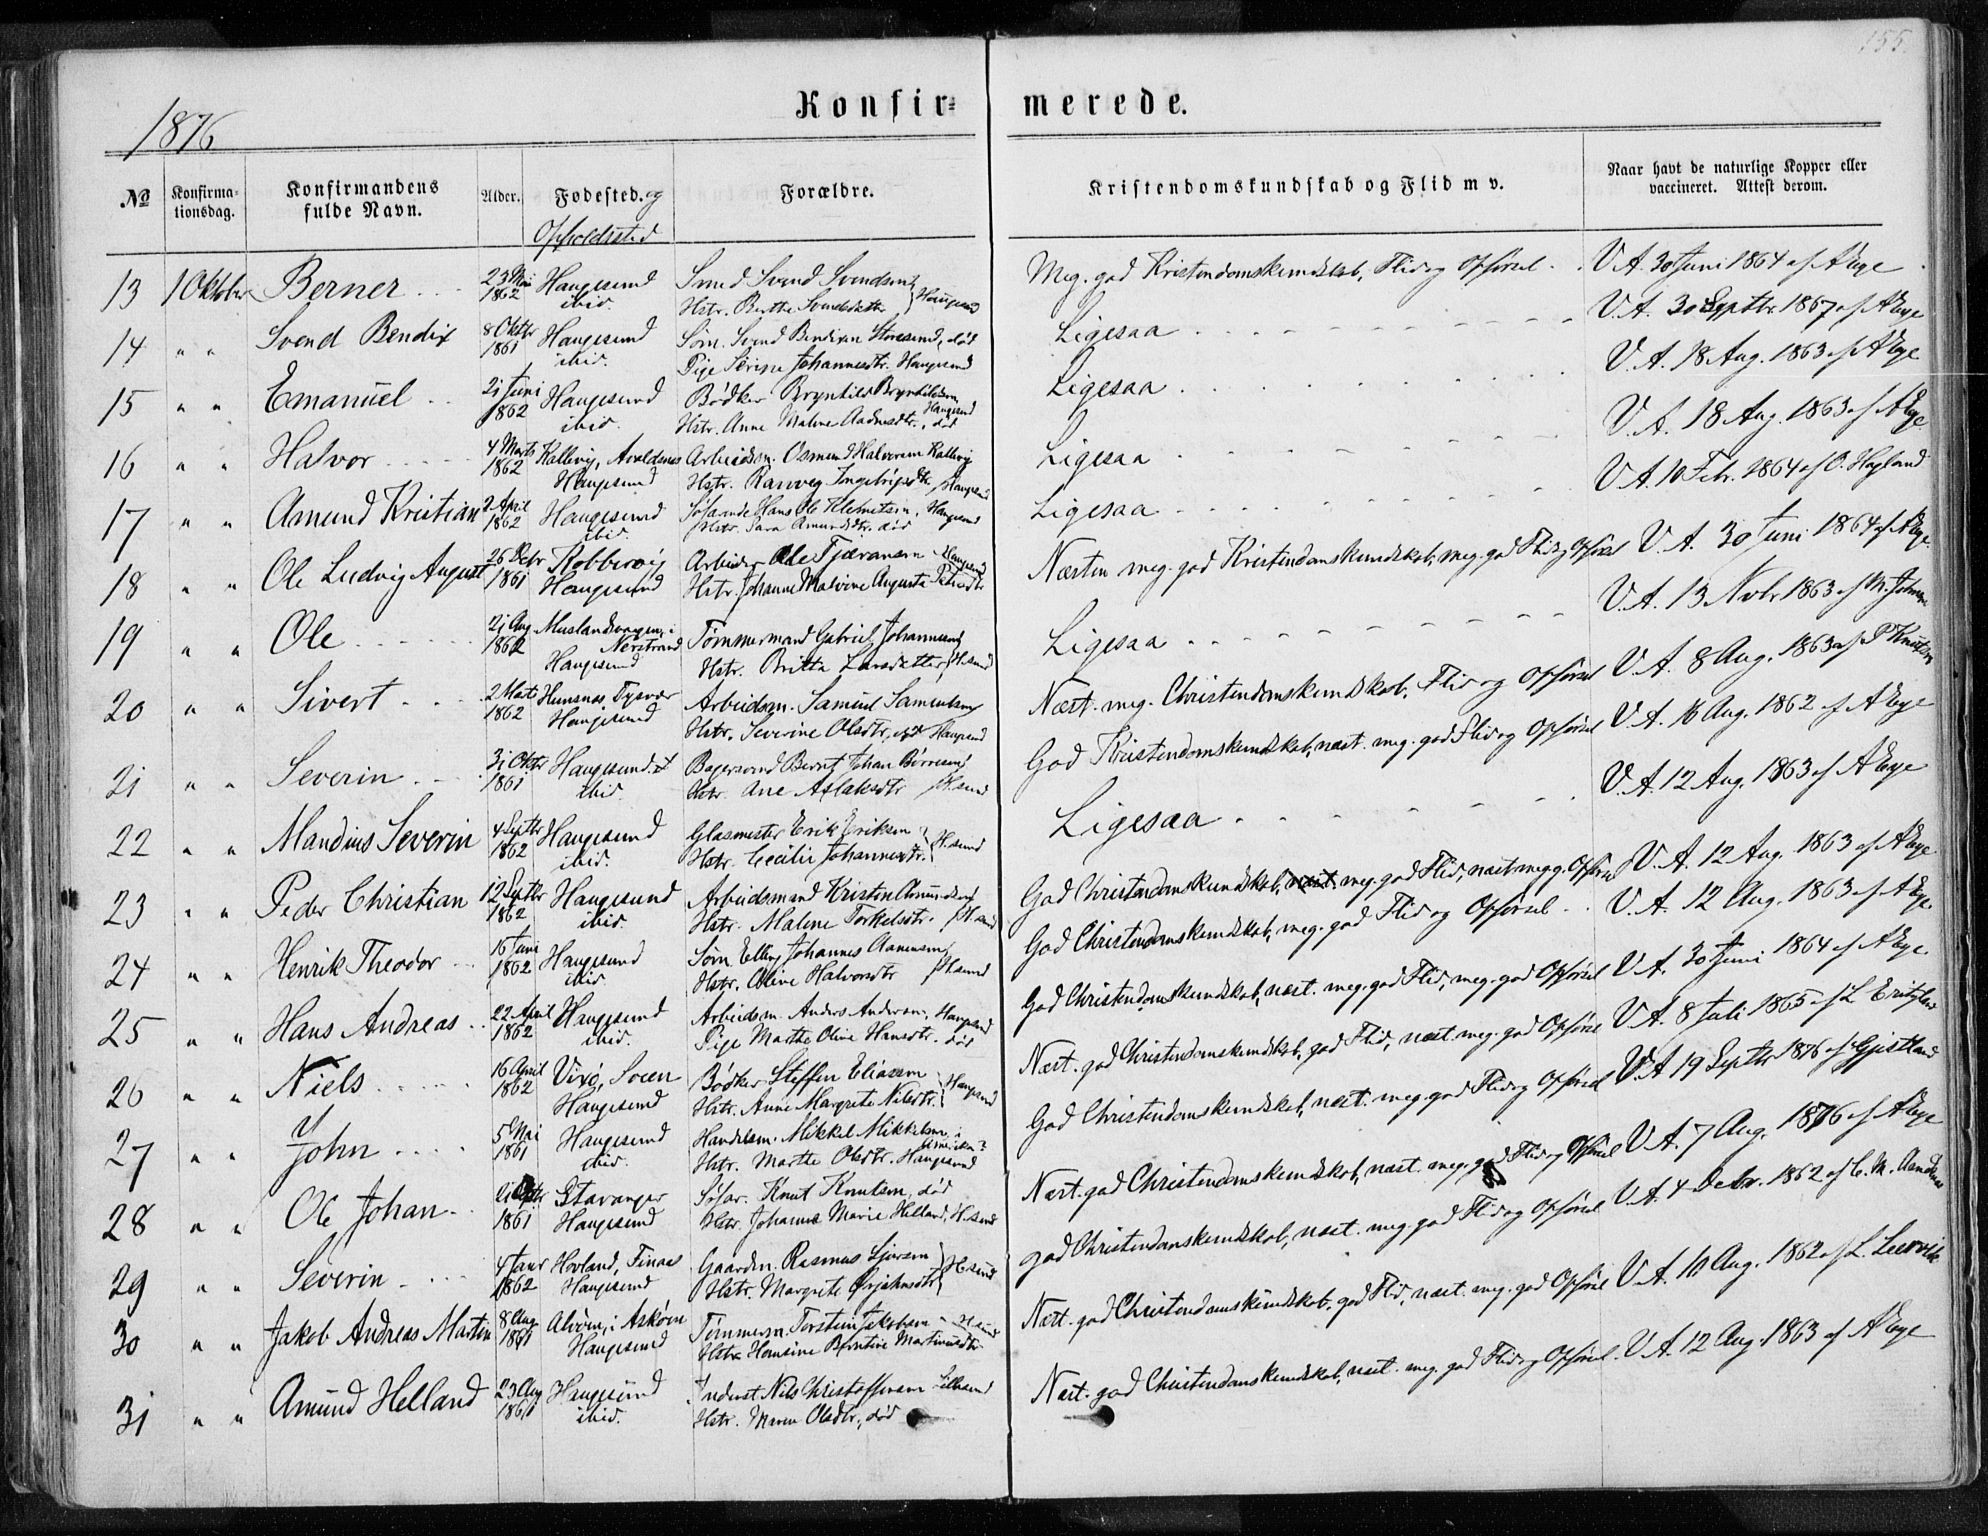 155.
1876
Konfir= merede.
№ Konfirma-tionsdag. Konfirmandens fulde Navn. Alder. Fødested. og Opholdssted Forældre. Kristendomskundskab og Flid m v. Naar havt de naturlige Kopper eller vaccineret. Attest derom.
13 1 Oktober Berner 23 Mai 1862 Haugesund ibid. Smed Svend Svendsen Hstr. Berthe Svendsdatter Haugesund Meg. god Kristendomskundskab, Flid og Opførsel. V. A. 30 Juni 1864 af A Eye
14 " " Svend Bendix 8 Oktbr 1861 Haugesund ibid. Søm. Svend Bendixen Storesund, død Pige Serine Johannesdtr. Haugesund Ligesaa V. A. 30 Septbr. 1867 af A Eye
15 " " Emanuel 21 Juni 1862 Haugesund ibid. Bødker Bryntild Bryntildsen, Haugesund Hstr. Anne Malene Aadnesdtr., død Ligesaa V. A. 18 Aug. 1863 af A Eye
16 " " Halvor 4 Marts 1862 Kallevig, Avaldsnes Haugesund Arbeidsm. Osmund Halvorsen Kallevig Hstr. Ranveg Ingebrigtsdtr. Haugesund Ligesaa V. A. 18 Aug. 1863 af A Eye
17 " " Amund Kristian 2 April 1862 Haugesund ibid. Søfarende Hans Ole Klemetsen, Haugesund Hstr. Sara Amundsdtr. død Ligesaa V A. 10 Febr. 1864 af O. Høgland
18 " " Ole Ludvig August 26 Debr 1861 Robbervig Haugesund Arbeider Ole Tjeransen Haugesund Hstr. Johanne Malvine Augusta Næsten meg. god Kristendomskundskab, meg. god Flid og Opførsel V. A. 30 Juni 1864 af A Eye
19 " " Ole 21 Aug 1862 Muslandsvaagen i Nerstrand Haugesund Tømmermand Gabriel Johannesen Hstr. Britta Larsdatter H.sund Ligesaa V. A. 13 Novbr 1863 af M. Johnsen
20 " " Sivert 2 Marts 1862 Hunsnæs, Tysvær Haugesund Arbeidsm. Samuel Samuelsen Hstr. Severine Olsdtr. Haugesund Næst. meg. Christendomskundskab, Flid og Opførsel V. A. 8 Aug. 1863 af P Knutsen
21 " " Severin 31 Oktbr 1861 Haugesund ibid. Bagersvend Bernt Johan Børresen Hstr. Ane Aslaksdtr H.sund God Kristendomskundskab, næst. meg. god Flid og Opførsel V. A. 16 Aug. 1862 af A Eye
22 " " Mandius Severin 4 Septbr 1862 Haugesund ibid. Glasmester Erik Eriksen Hstr. Cecilie Johannesdtr. H.sund Ligesaa V. A. 12 Aug. 1863 af A Eye
23 " " Peder Christian 12 Septbr 1862 Haugesund ibid. Arbeidsmand Kristen Amundsen Hstr. Malene Torkelsdtr. H.sund God Christendomskundskab, meg. god Flid, næst meg g. Opførsel V. A. 12 Aug. 1863 af A Eye
24 " " Henrik Theodor 16 Juni 1862 Haugesund ibid. Søm. Elling Johannes Aanensen Hstr. Oline Halvorsdtr H.sund God Christendomskundskab, meg. god Flid og Opførsel V. A. 12 Aug. 1863 af A Eye
25 " " Hans Andreas 22 April 1862 Haugesund ibid. Arbeidsm. Anders Andersen, Haugesund Pige Marthe Oline Hansdtr. død God Christendomskundskab, næst. meg. god Flid, meg. god Opførsel V. A. 30 Juni 1864 af A Eye
26 " " Niels 16 April 1862 Vixø, Sveen Haugesund Bødker Steffen Eliassen Hstr. Anne Margrete Nilsdtr. Haugesund Næst. god Christendomskundskab, god Flid, næst. meg. god Opførsel V A. 8 Juli 1865 af L
27 " " John 5 Mai 1861 Haugesund ibid. Handelsm. Mikkel Mikkelsen, i Amerika? Hstr. Marthe Olsdtr. Haugesund God Christendomskundskab, næst. meg. god Flid og Opførsel V. A 19 Septbr 1876 af Gjestland
28 " " Ole Johan 1861 Stavanger Haugesund Søfar. Knut Knutsen, død Hstr. Johanne Marie Helland, H.sund Næst. god Christendomskundskab, næst. meg. god Flid og Opførsel V. A. 7 Aug. 1876 af A Eye
29 " " Severin 4 Janr 1862 Hovland, Finaas Haugesund Gaardm. Rasmus Hstr. Margrete H.sund god Christendomskundskab, næst. meg. god Flid og Opførsel V. A. 4 Debr. 1862 af C. M.
30 " " Jakob Andreas Martin 8 Aug 1861 Alvøen, i Askøen Haugesund Tømmerm. Torstein Jakobsen H.sund Hstr Hansine Berntine Martinusdtr Næst. god Christendomskundskab, god Flid, næst. meg. god Opførsel V. A. 10 Aug. 1862 af L.
31 " " Amund Helland 23 Aug 1861 Haugesund ibid. Nils Christoffersen Hstr. Maren Olsdtr., død Næst. god Christendomskundskab, næst. meg. god Flid og Opførsel. V. A. 12 Aug. 1863 af A Eye